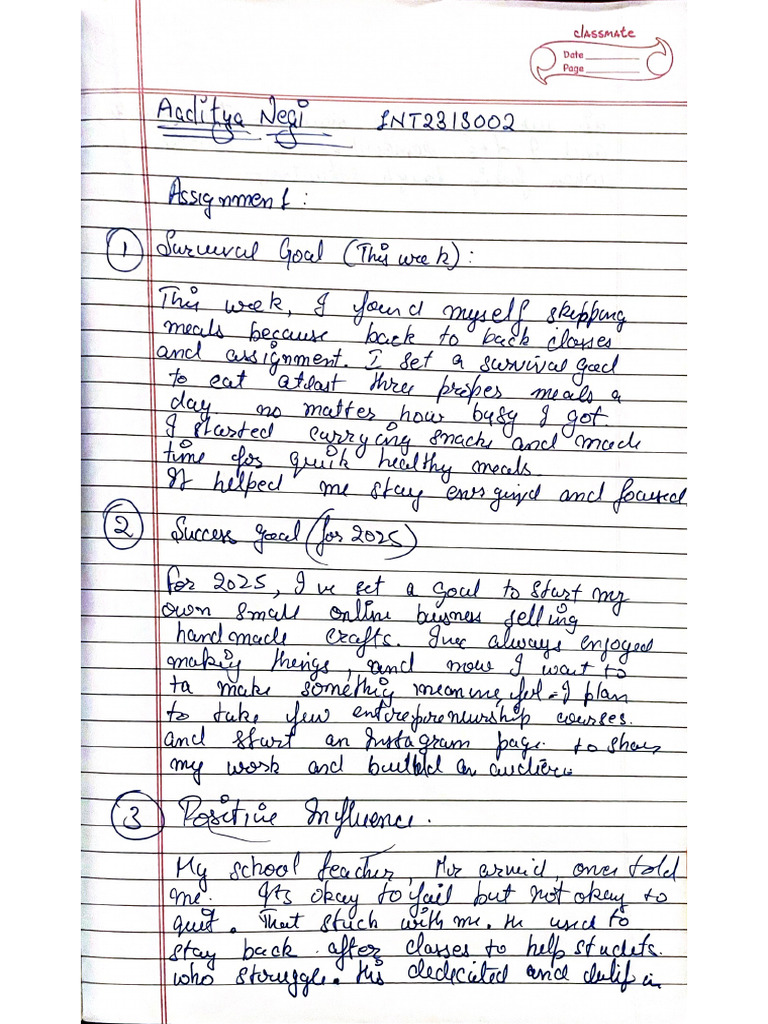 classmate
Date
Page
Aaditya Negi INT2313002
Assignment :
1 Survival Goal (This week) :
This week, I found myself skipping
meals because back to back classes
and assignment. I set a survival goal
to eat atleast three proper meals a
day no matter how busy I got.
I started carrying snacks and made
time for quik healthy meals.
It helped me stay energized and focused
2 Success goal (for 2025)
For 2025, I've set a goal to start my
own small online business selling
handmade crafts. I've always enjoyed
making things, and now I want to
to make something meaningful. I plan
to take few enterpreneurship courses.
and start an Instagram page to share
my work and build an audience
3 Positive Influence.
My school teacher, Mr , once told
me. Its okay to fail but not okay to
quit. That stuck with me. He used to
stay back after classes to help students.
who struggle. His dedicated and belif in